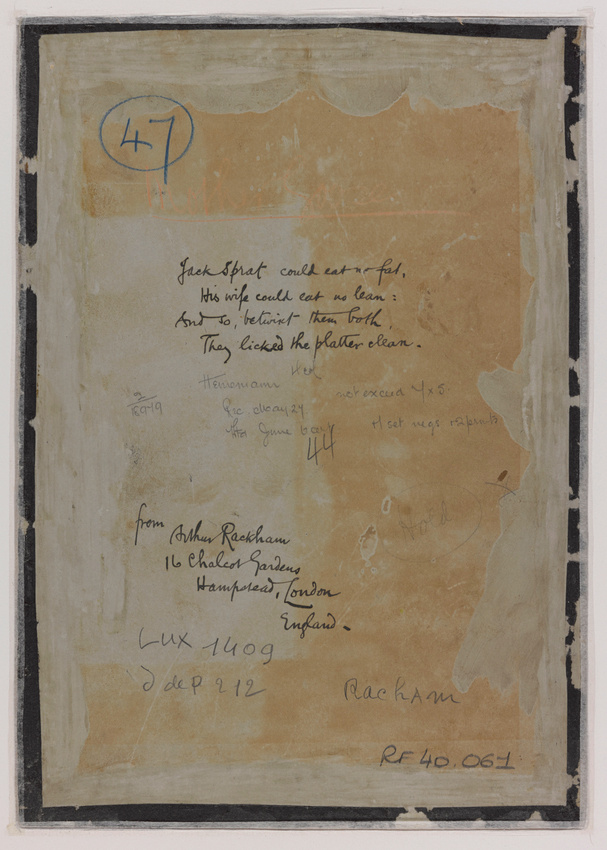 47
Jack Sprat could eat no fat,
His wife could eat no lean:
And so, betwixt them both,
They licked the platter clean.
Heinemann
not exceed 4x5
Rec May 27
June
44
from
Arthur Rackham
16 Chalcot Gardens
Hampstead, London
England.
LUX 1409
J de P 212
RAckham
RF 40.061